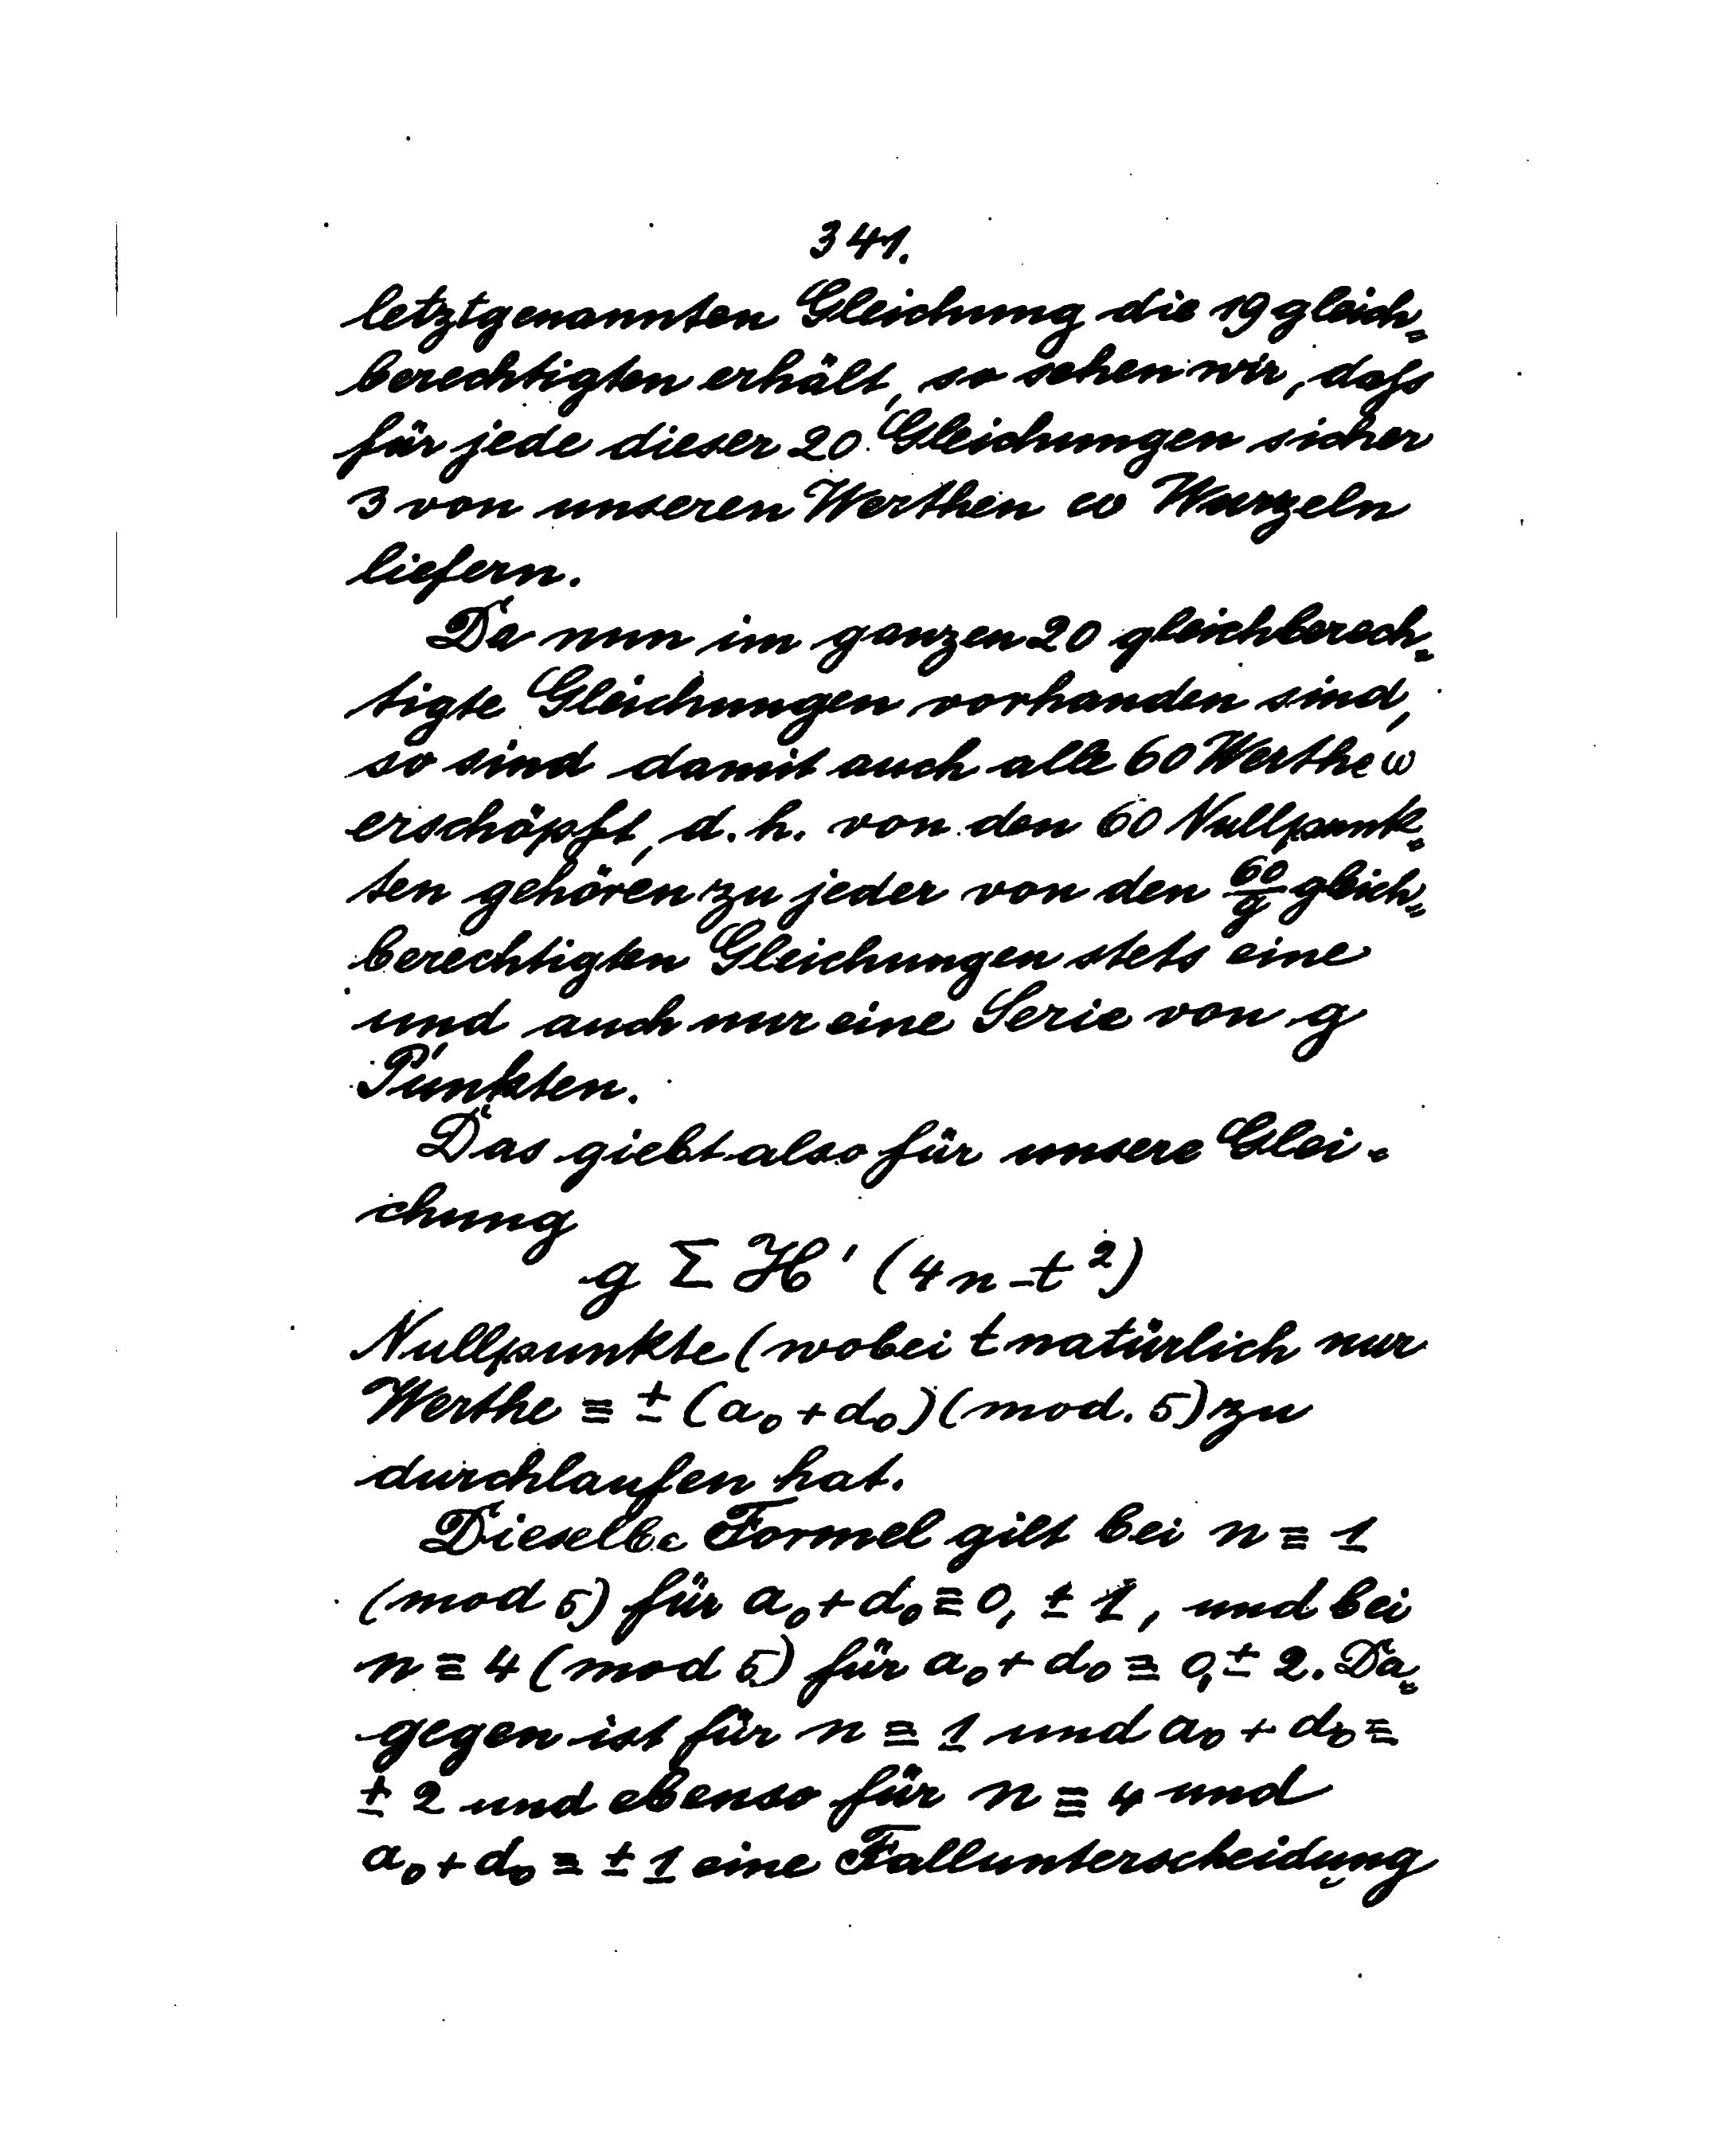 341.
letztgenannten Gleichung die 19 gleich=
berechtigten erhält, so sehen wir, daſs
für jede dieser 20 Gleichungen sicher
3 von unseren Werthen ω Wurzeln
liefern.
Da nun im ganzen 20 gleichberech=
tigte Gleichungen vorhanden sind,
so sind damit auch alle 60 Werthe ω
erschöpft, d. h. von den 60 Nullpunk=
ten gehören zu jeder von den 60/g gleich=
berechtigten Gleichungen stets eine
und auch nur eine Serie von g
Punkten.
Das giebt also für unsere Glei=
chung
g Σ H' (4n - t²)
Nullpunkte (wobei t natürlich nur
Werthe ≡ ± (a₀ + d₀) (mod. 5) zu
durchlaufen hat.
Dieselbe Formel gilt bei n ≡ 1
(mod 5) für a₀ + d₀ ≡ 0, ± 1, und bei
n ≡ 4 (mod 5) für a₀ + d₀ ≡ 0, ± 2. Da=
gegen ist für n ≡ 1 und a₀ + d₀ ≡
± 2 und ebenso für n ≡ 4 und
a₀ + d₀ ≡ ± 1 eine Fallunterscheidung